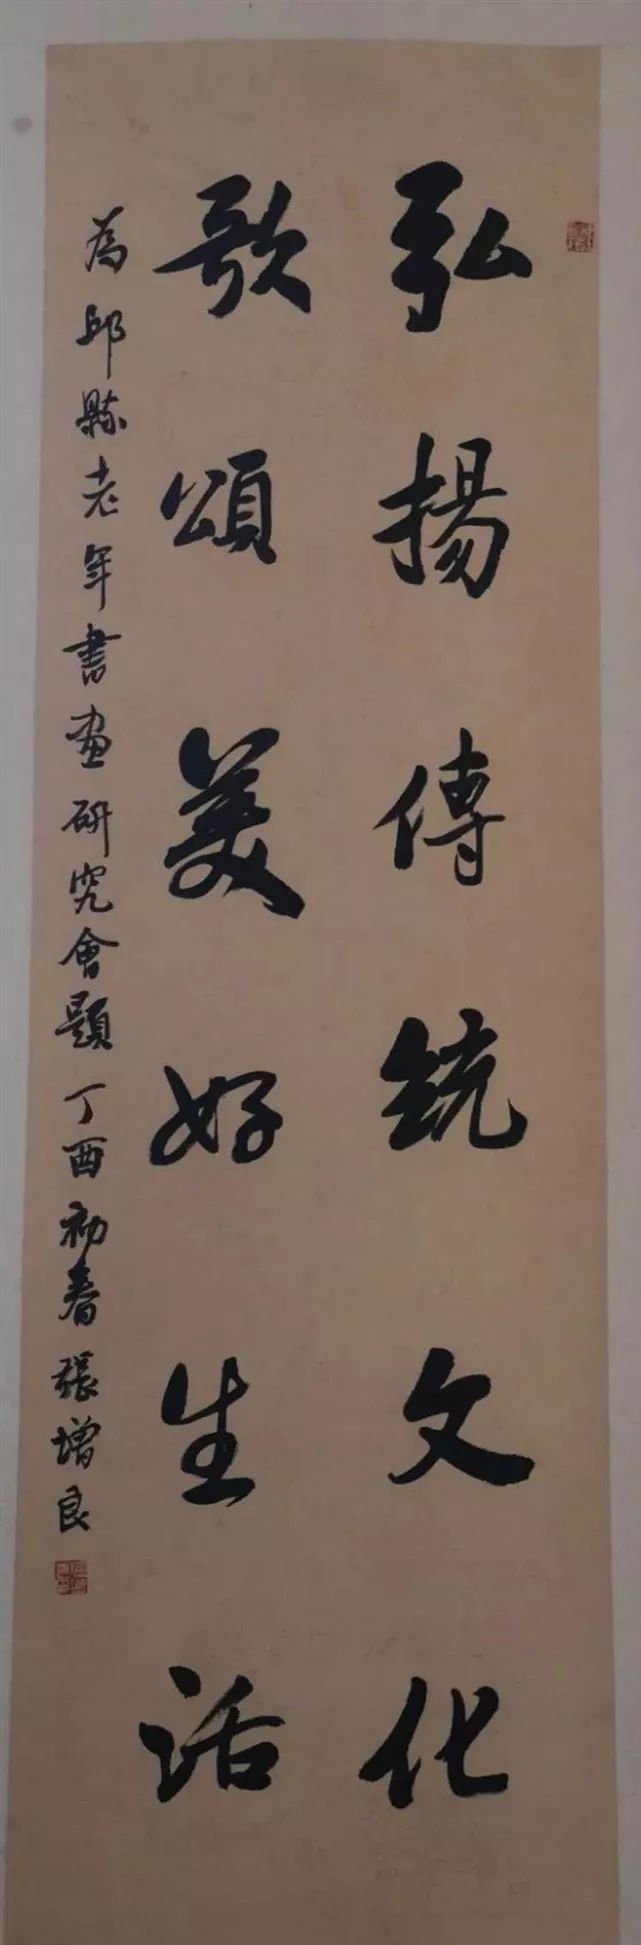 弘揚傳統文化
歌頌美好生活
為邱縣老年書畫研究會題丁酉初春張增良